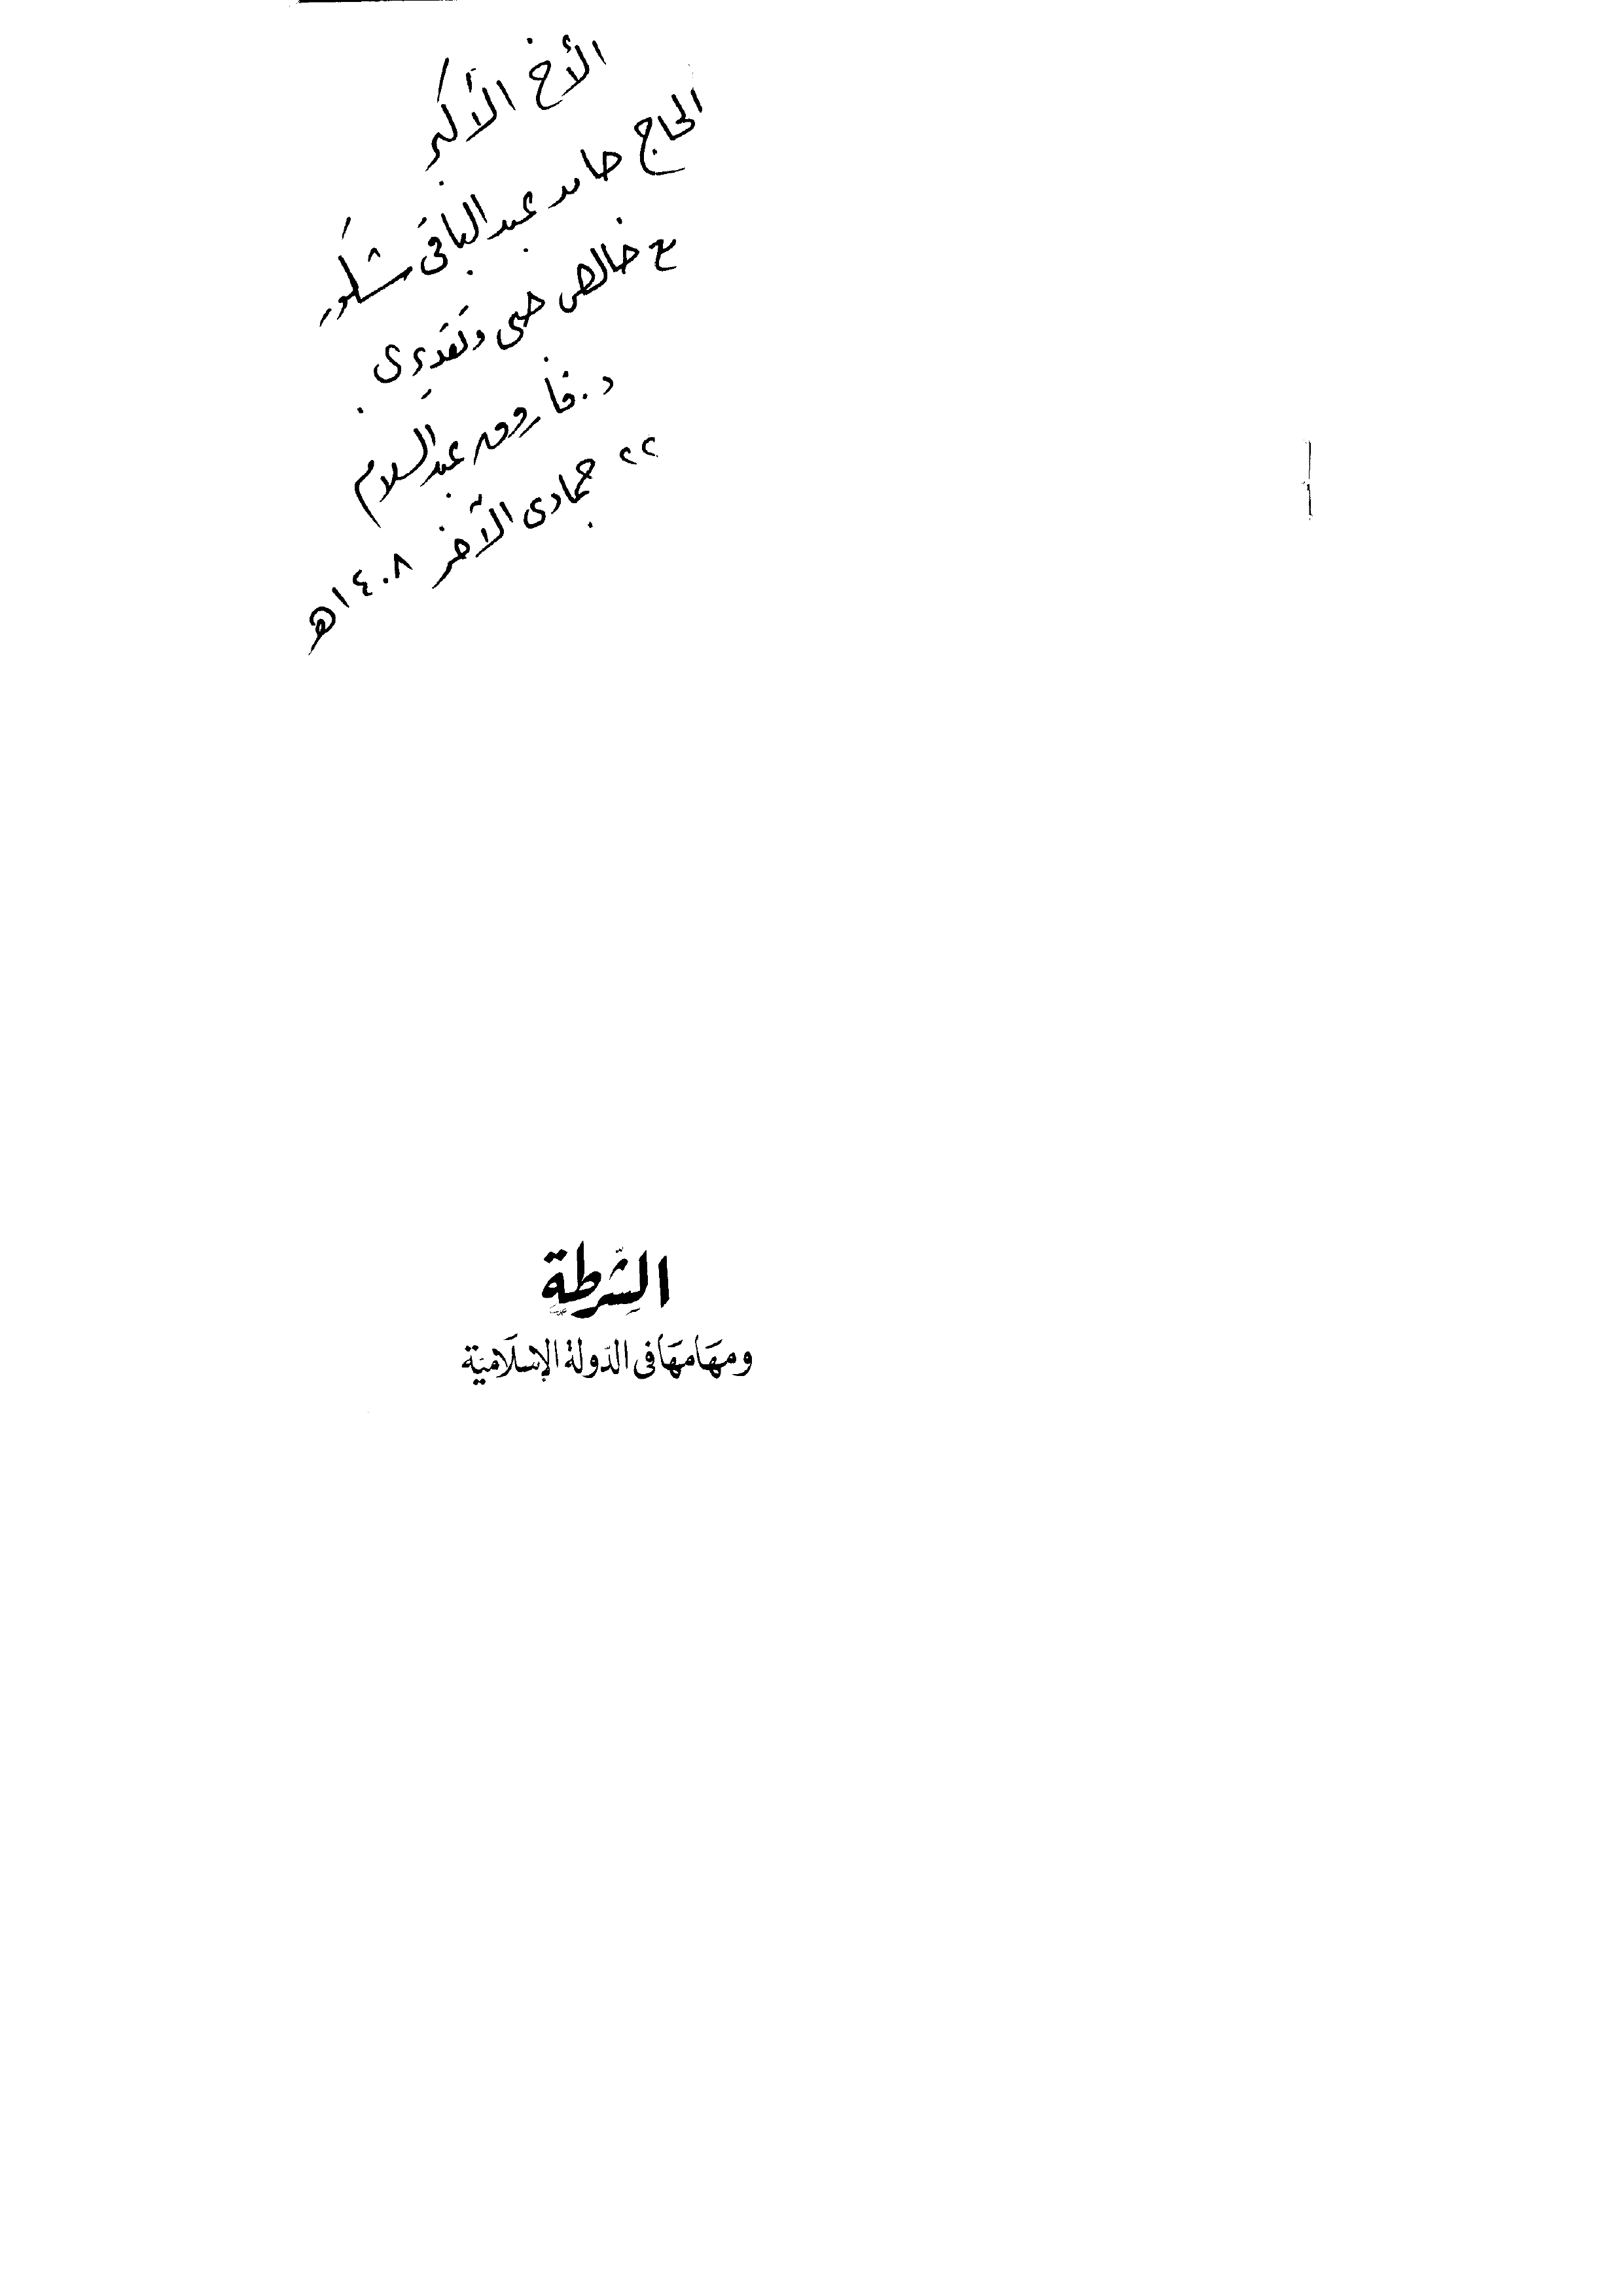 الأخ الأكبر
الحاج حامد عبد الباقى
مع خالص حبى وتقديرى .
د. فاروق عبد السلام
٢٢ جمادى الآخر ١٤٠٨ه
الشرطة
ومهامها فى الدولة الإسلامية